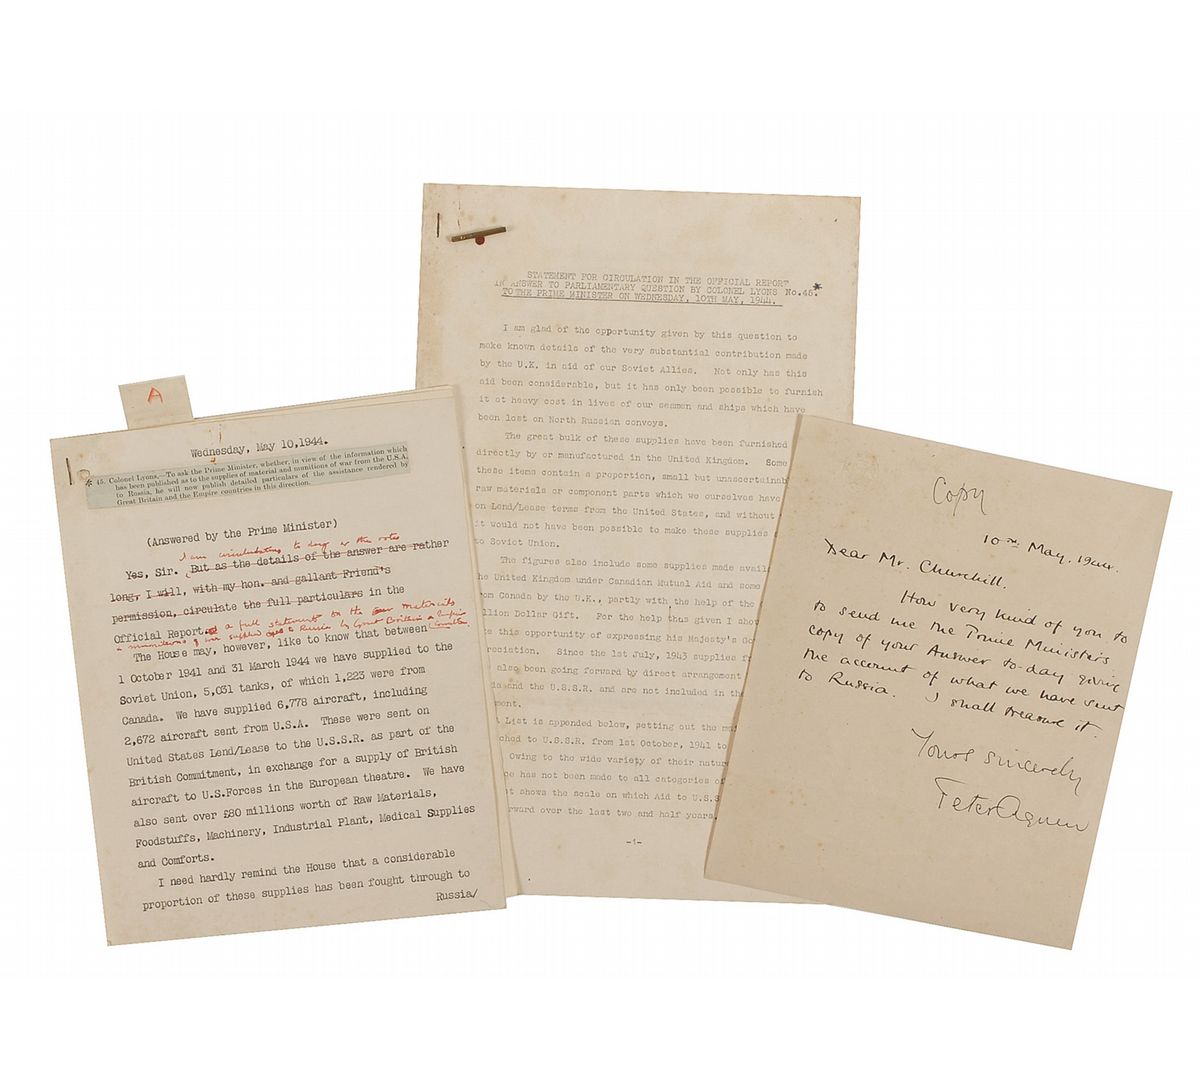 A
Wednesday, May 10, 1944.
* 45. Colonel Lyons,—To ask the Prime Minister, whether, in view of the information which
has been published as to the supplies of material and munitions of war from the U.S.A.
to Russia, he will now publish detailed particulars of the assistance rendered by
Great Britain and the Empire countries in this direction.
(Answered by the Prime Minister)
I am circulating to day in the
Yes, Sir. But as the details of the answer are rather
long, I will, with my hon. and gallant Friend's
permission, circulate the full particulars in the
Official Report. a full statement on the materials
& munitions of war supplied to Russia by Great Britain & Empire
The House may, however, like to know that between
1 October 1941 and 31 March 1944 we have supplied to the
Soviet Union, 5,031 tanks, of which 1,223 were from
Canada. We have supplied 6,778 aircraft, including
2,672 aircraft sent from U.S.A. These were sent on
United States Lend/Lease to the U.S.S.R. as part of the
British Commitment, in exchange for a supply of British
aircraft to U.S.Forces in the European theatre. We have
also sent over £80 millions worth of Raw Materials,
Foodstuffs, Machinery, Industrial Plant, Medical Supplies
and Comforts.
I need hardly remind the House that a considerable
proportion of these supplies has been fought through to
Russia/
STATEMENT FOR CIRCULATION IN THE OFFICIAL REPORT
IN ANSWER TO PARLIAMENTARY QUESTION BY COLONEL LYONS No.45.*
TO THE PRIME MINISTER ON WEDNESDAY, 10TH MAY, 1944.
I am glad of the opportunity given by this question to
make known details of the very substantial contribution made
by the U.K. in aid of our Soviet Allies. Not only has this
aid been considerable, but it has only been possible to furnish
it at heavy cost in lives of our seamen and ships which have
been lost on North Russian convoys.
The great bulk of these supplies have been furnished
directly by or manufactured in the United Kingdom. Some
these items contain a proportion, small but unascertainab
raw materials or component parts which we ourselves have
on Lend/Lease terms from the United States, and without
it would not have been possible to make these supplies
to Soviet Union.
The figures also include some supplies made availa
the United Kingdom under Canadian Mutual Aid and some
from Canada by the U.K., partly with the help of the
llion Dollar Gift. For the help thus given I shou
this opportunity of expressing his Majesty's Go
reciation. Since the 1st July, 1943 supplies f
also been going forward by direct arrangement
da and the U.S.S.R. and are not included in the
ment.
List is appended below, setting out the mai
ched to U.S.S.R. from 1st October, 1941 to
Owing to the wide variety of their natur
ce has not been made to all categories of
t shows the scale on which Aid to U.S.S
rward over the last two and half years.
-1-
Copy
10th May, 1944.
Dear Mr. Churchill,
How very kind of you to
to send me the Prime Ministers
copy of your Answer to-day giving
the account of what we have sent
to Russia. I shall treasure it.
Yours sincerely
Peter Agnew